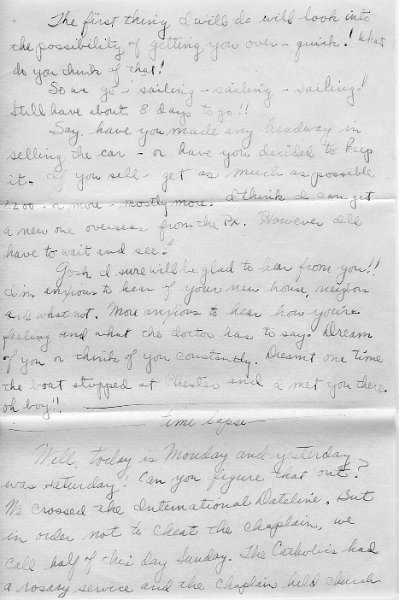 The first thing I will do will look into
the possibility of getting you over - quick! What
do you think of that!
So we go - sailing - sailing - sailing!
Still have about 8 days to go!!
Say, have you made any headway in
selling the car - or have you decided to keep
it. If you sell - get as much as possible,
or more - mostly more. I think I can get
a new one overseas from the Px. However I'll
have to wait and see.
Gosh I sure will be glad to hear from you!!
I'm anxious to hear of your new house, neighbors
and what not. More anxious to hear how you're
feeling and what the doctor has to say. Dream
of you or think of you constantly. Dreamt one time
the boat stopped at Chester and I met you there,
oh boy!!
time lapse
Well, today is Monday and yesterday
was Saturday! Can you figure that out?
We crossed the International Dateline. But
in order not to cheat the chaplain, we
call half of this day Sunday. The Catholics had
a rosary service and the chaplain held church